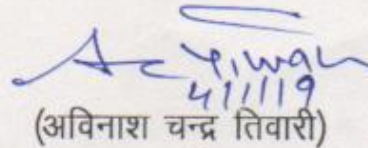 Ac Tiwari
4/1/19
(अविनाश चन्द्र तिवारी)